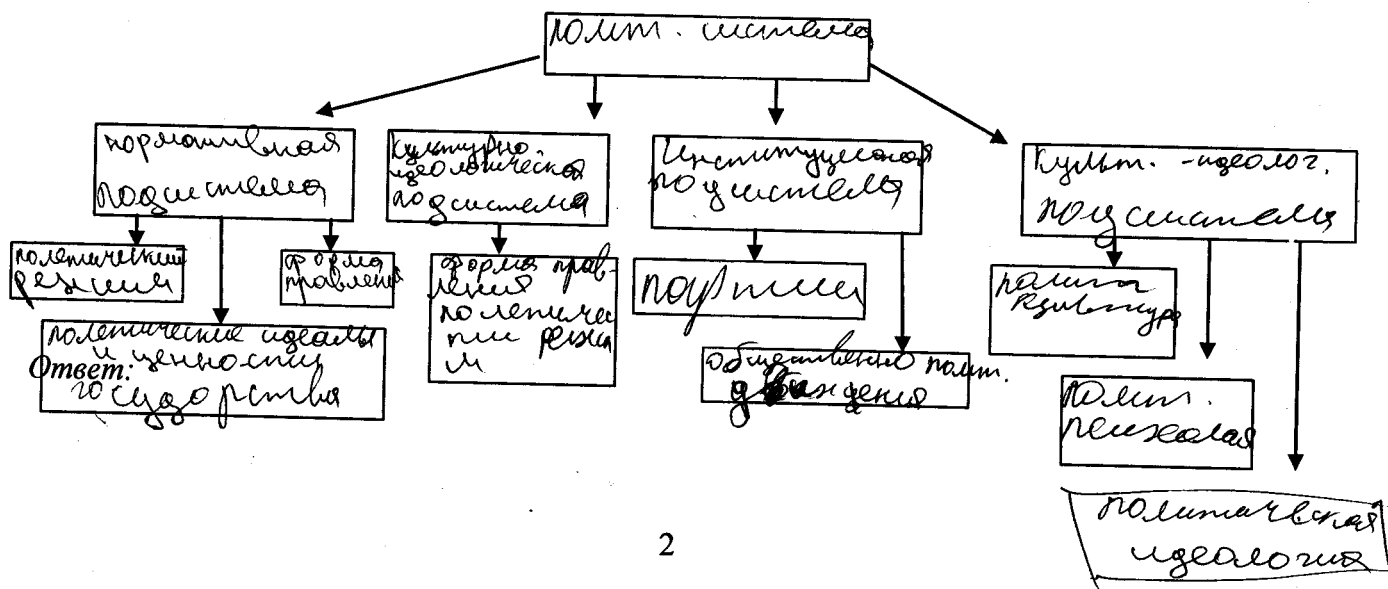 полит. система
нормативная
подсистема
культурно-
идеологическая
подсистема
Институцисоная
подсистема
культ. -идеолог.
подсистема
полетический
режим
форма
правления
полетические идеалы
и ценности
Ответ:
государства
форма прав-
ления
полетичес
режи
м
партии
общественно полит.
движения
полит
культура
полит.
политическая
идеология
2